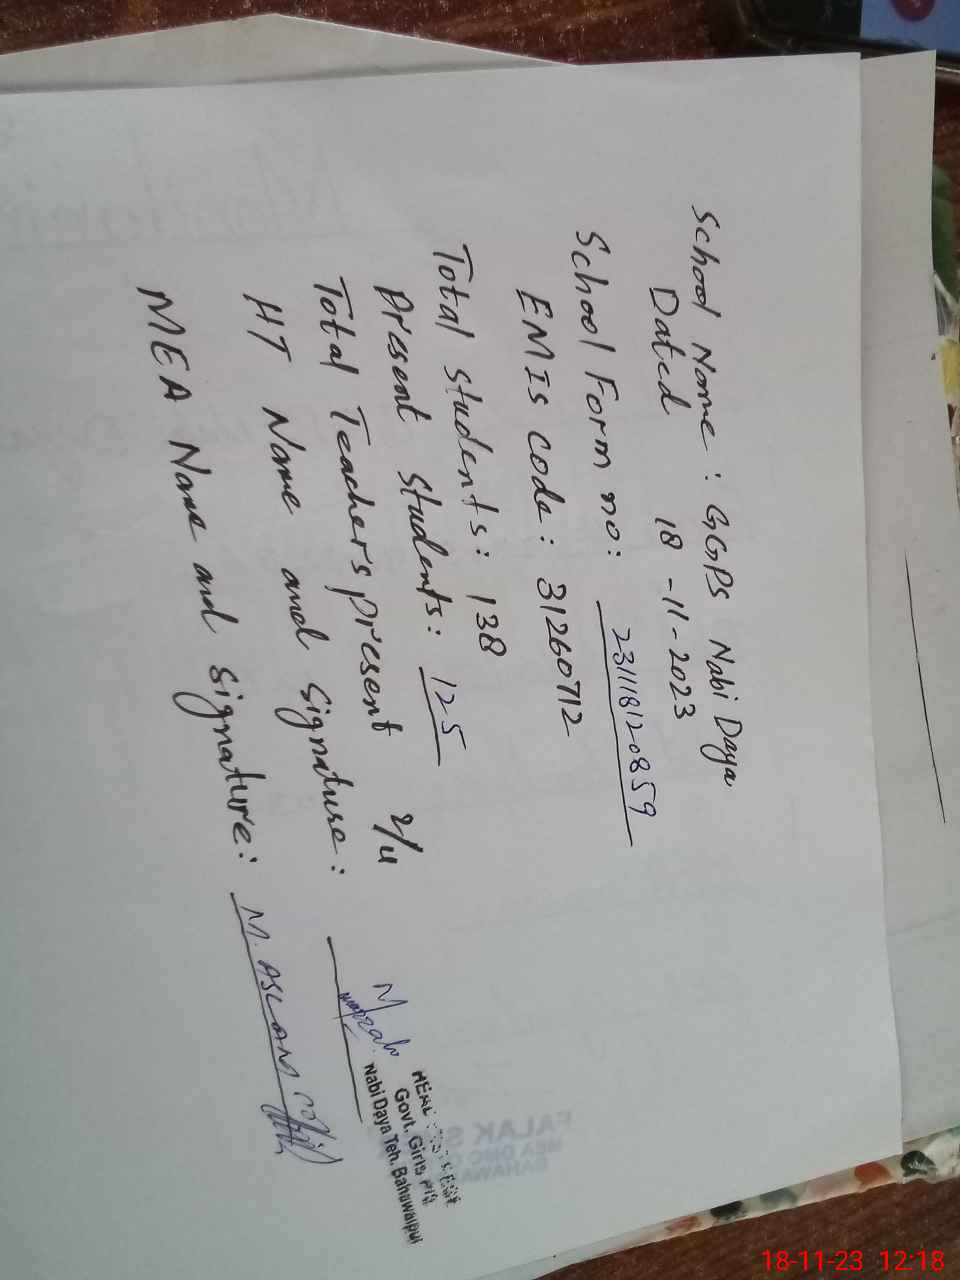 School Name: GGPS Nabi Daya
Dated 18-11-2023
School Form no: 231118120859
EMIS code: 31260712
Total students: 138
Present students: 125
Total Teachers present 2/4
HT Name and Signature:
MEA Name and Signature: M. ASLAM
Govt. Girls
Nabi Daya Teh. Bahawalpur
FALAK S
MEA DMO
BAHAWA
18-11-23 12:18